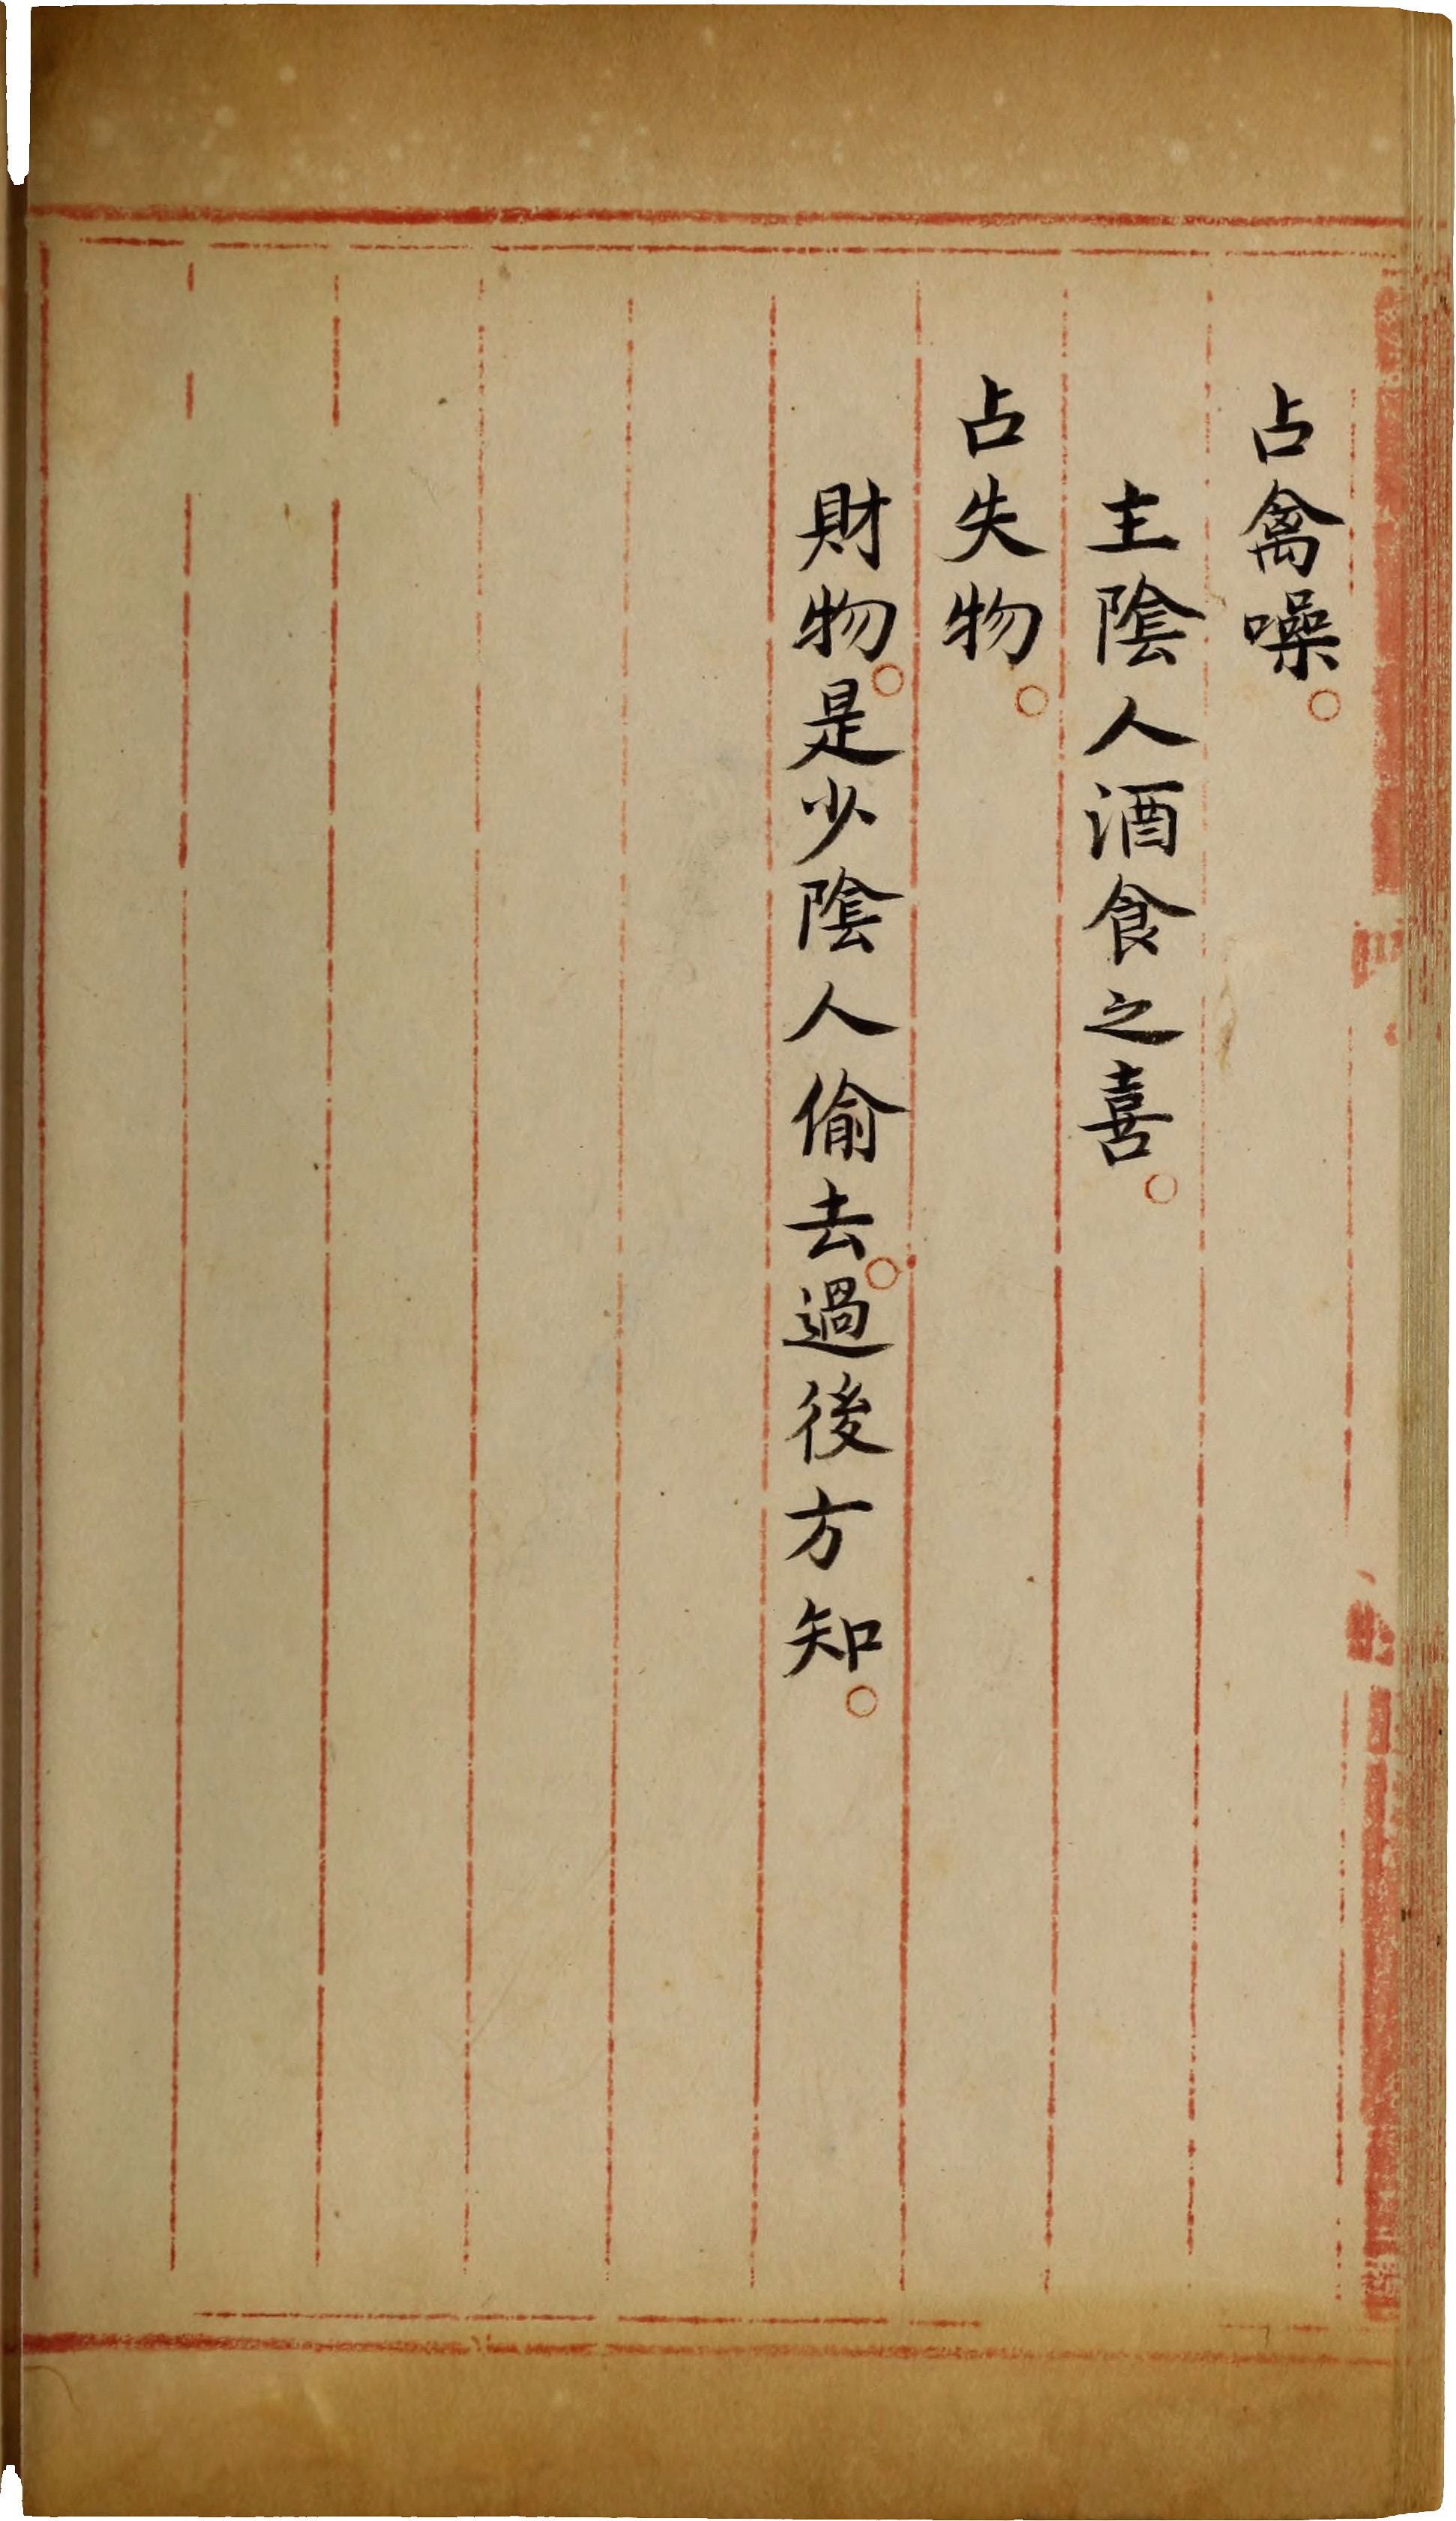 占禽噪。
主陰人酒食之喜。
占失物。
財物。是少陰人偷去。過後方知。